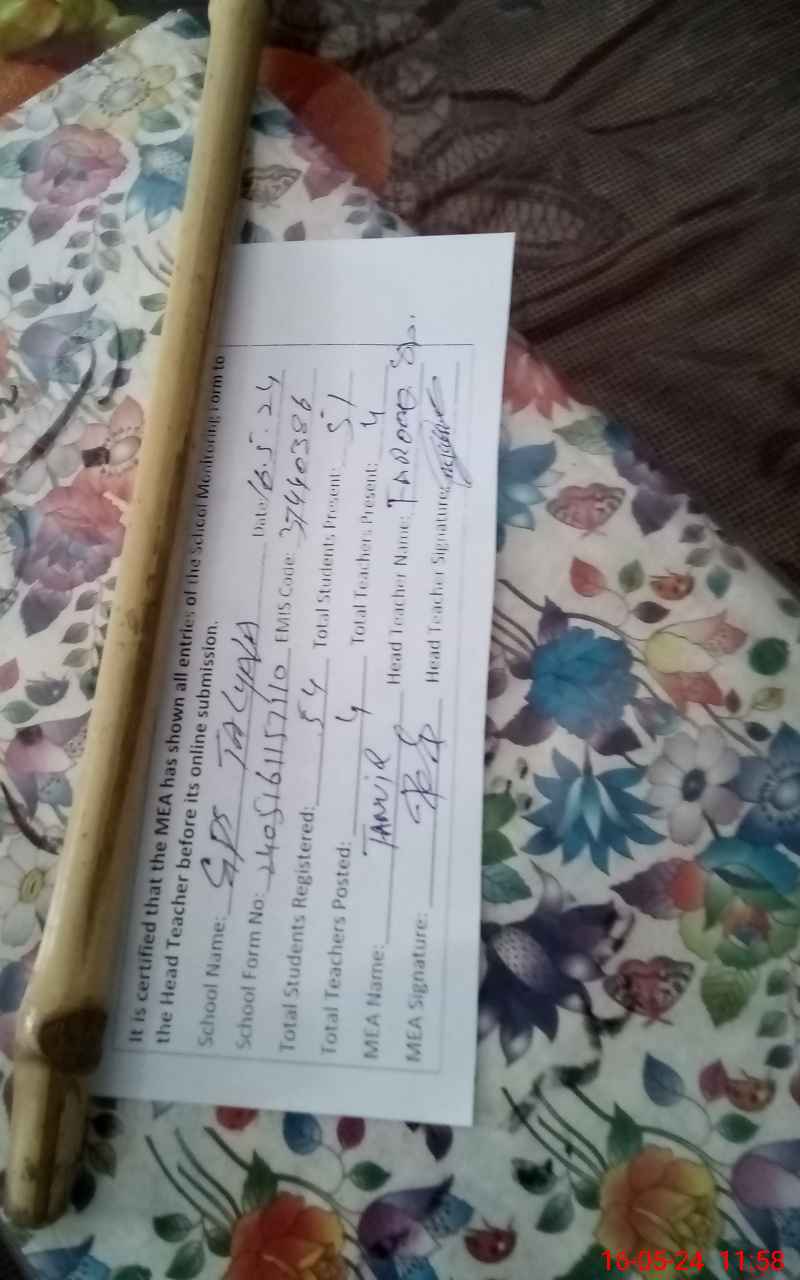 It is certified that the MEA has shown all entries of the School Monitoring Form to
the Head Teacher before its online submission.
School Name: GPS TALYALA Date: 16.5.24
School Form No: 24051611571510 EMIS Code: 37440386
Total Students Registered: 54 Total Students Present: 51
Total Teachers Posted: 4 Total Teachers Present: 4
MEA Name: TANVIR Head Teacher Name: TAROOQ
MEA Signature: Head Teacher Signature:
16-05-24 11:58